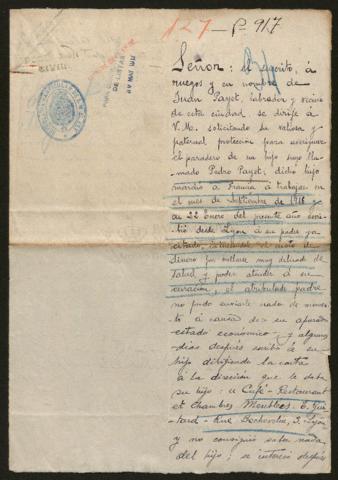 127 - P-917
Señor: el escrito, á
ruegos y en nombre de
Juan Payet, labrador y vecino
de esta ciudad se dirije á
V.M. solicitando su valiosa y
paternal protección para averiguar
el paradero de un hijo suyo lla-
mado Pedro Payet, dicho hijo
marchó a Francia á trabajar en
el mes de Septiembre de 1916 y
de 22 Enero del presente año escri-
bió desde Lyon á su padre ya
citado, el envío de
dinero por hallarse muy delicado de
salud y poder atender á su
curación, el atribulado padre
no pudo enviarle nada de momen-
to á causa de su apurado
estado económico y algunos
dias después escribió á su
hijo dirijiendo la carta
á la dirección que le daba
su hijo: Café-Restaurant
et Chambres Meublées. E. Gui-
tard - Rue Bechevelin, 3. Lyon
y no consiguió saber nada
del hijo; se interesó después